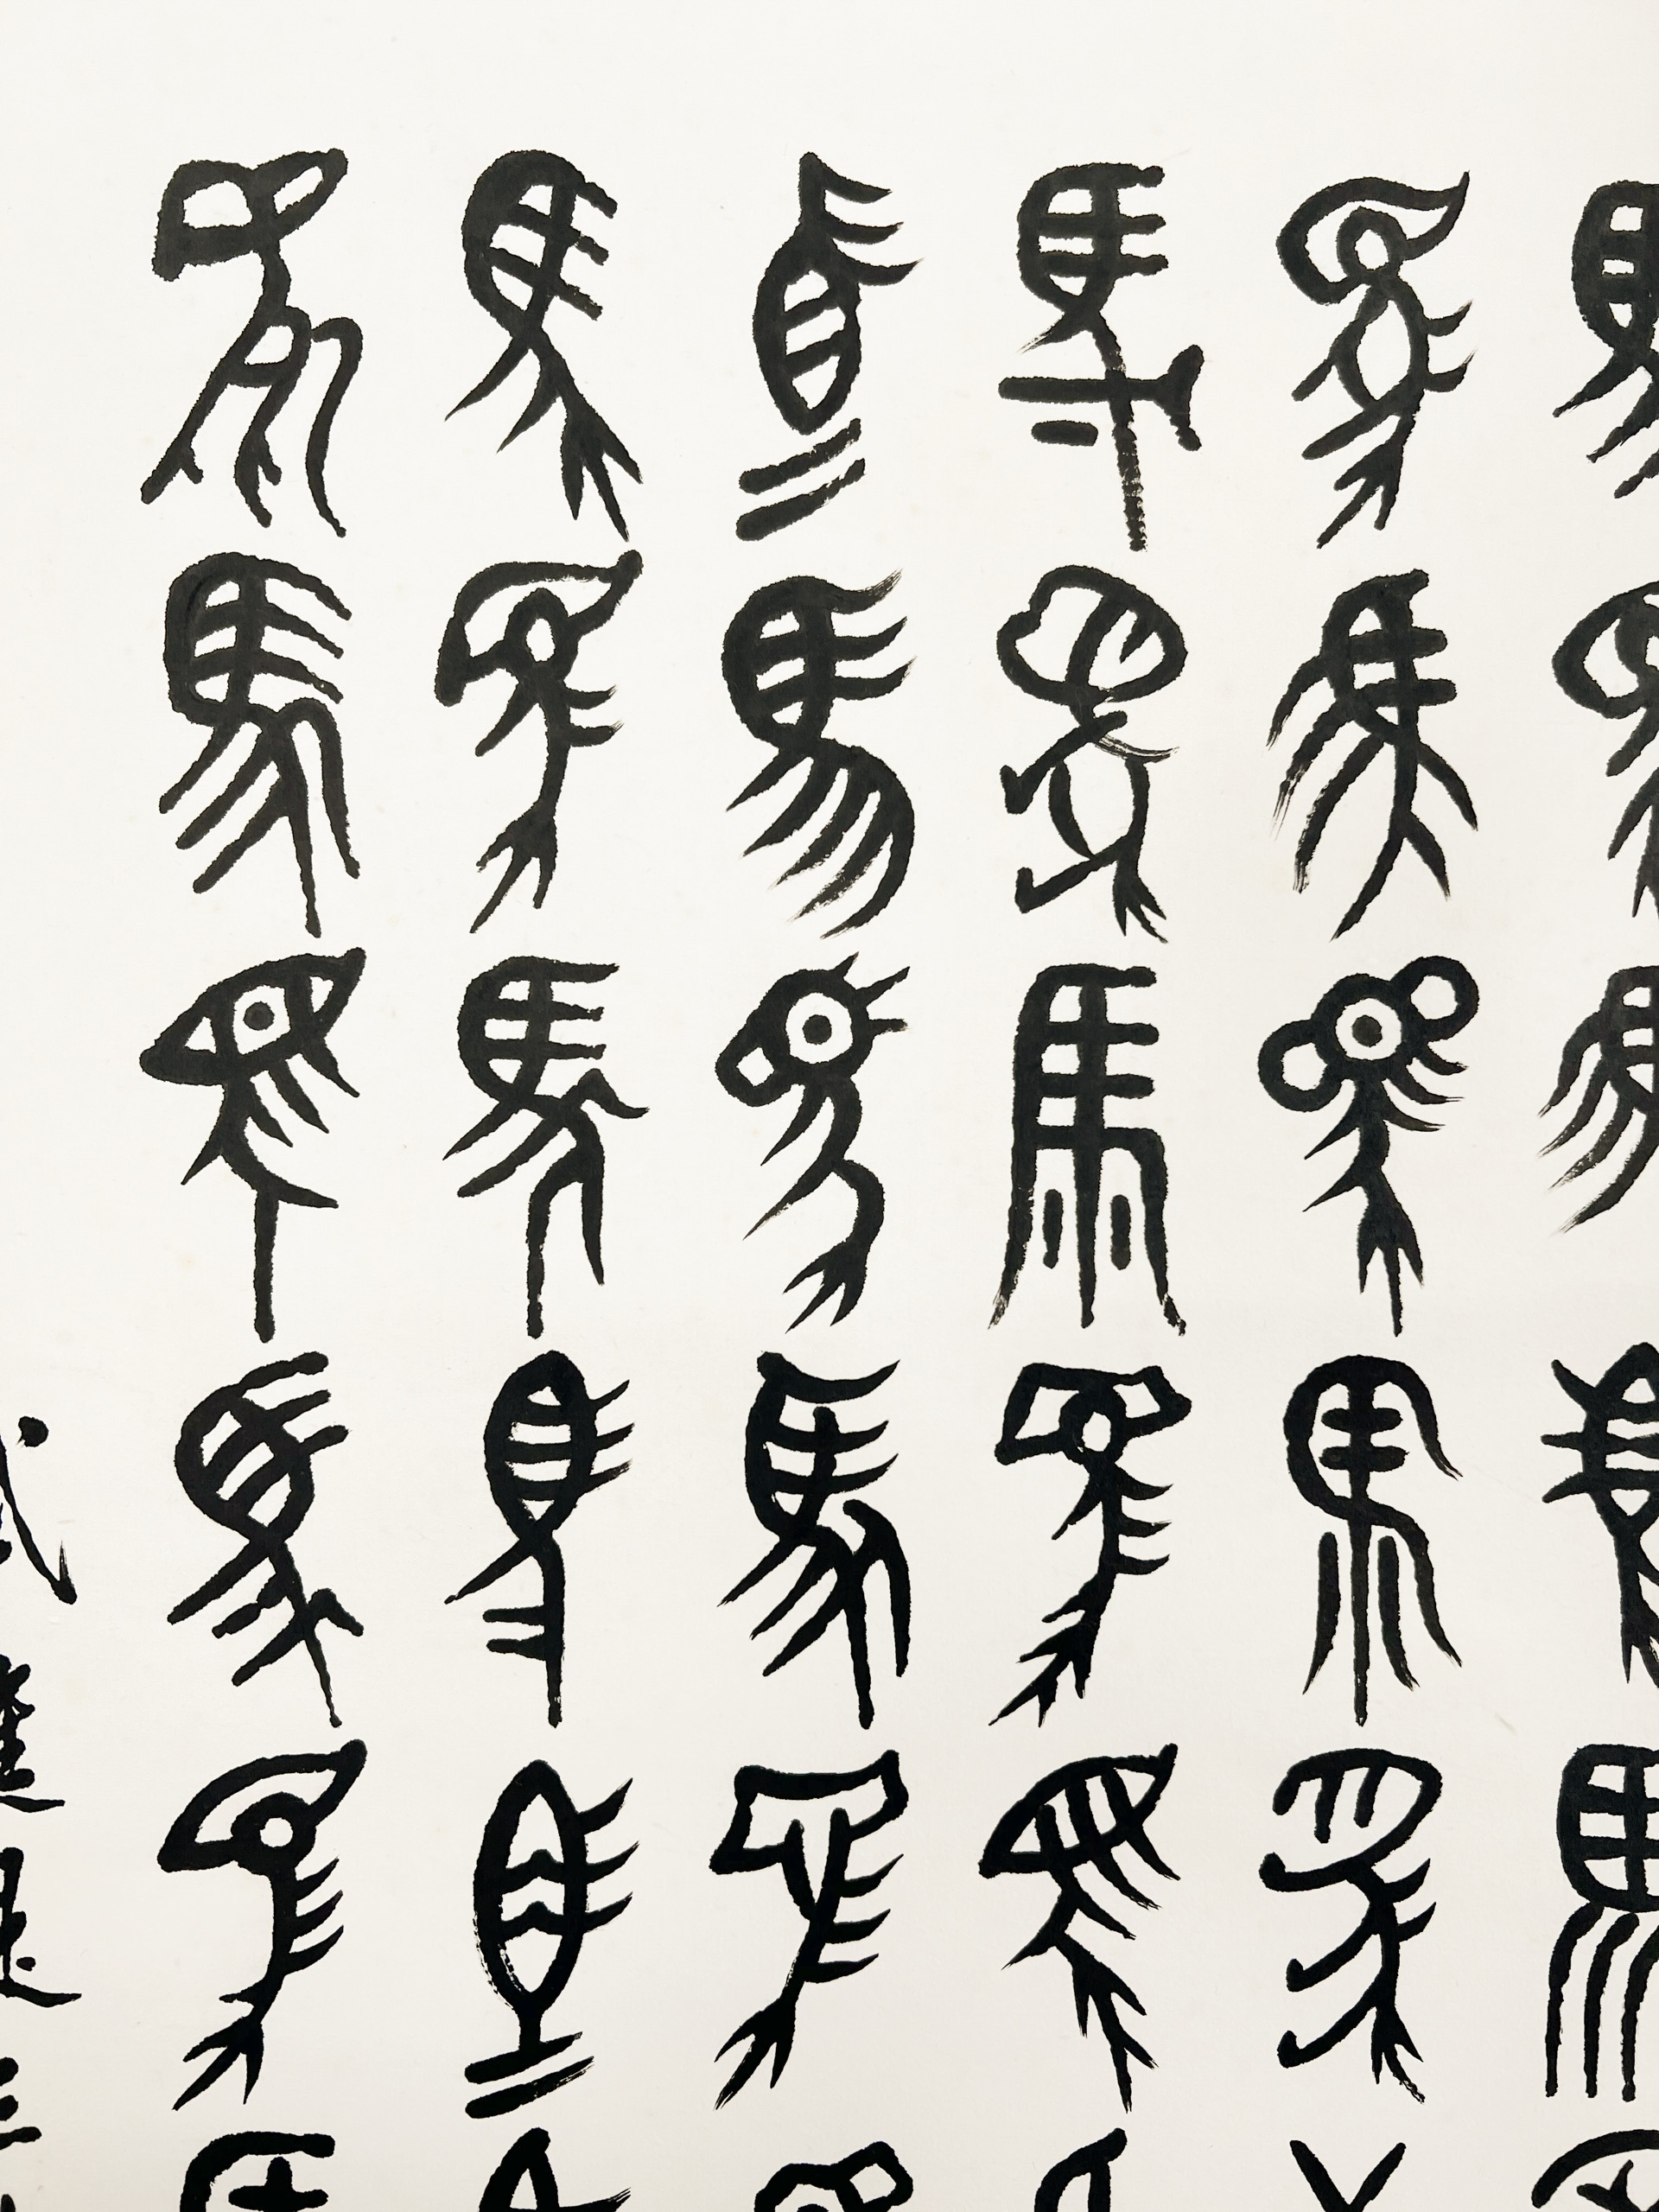 馬馬馬馬馬
馬馬馬馬馬
馬馬馬馬馬
馬馬馬馬馬
馬馬馬馬馬
馬馬馬馬馬